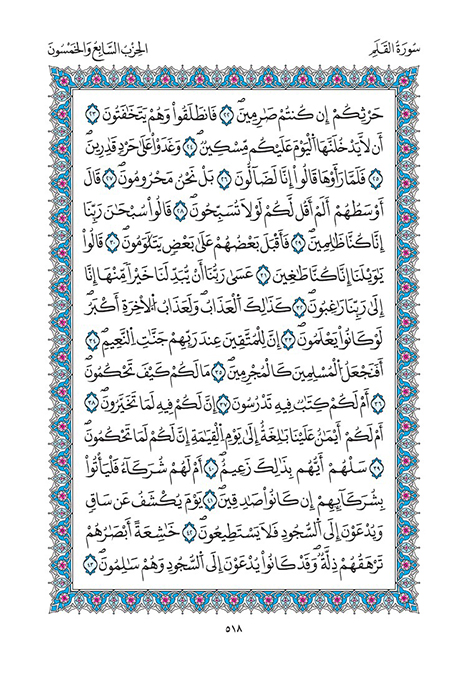 سُورَةُ الْقَلَمِ
الحِزْبُ السَّابِعُ وَالخَمْسُونَ
حَرْثِكُمُۥٓ إِن كُنتُمْ صَٰرِمِينَ ٢٢ فَانطَلَقُوا۟ وَهُمْ يَتَخَٰفَتُونَ ٢٣
أَن لَّا يَدْخُلَنَّهَا اَ۬لْيَوْمَ عَلَيْكُم مِّسْكِينٌ ٢٤ وَغَدَوْا۟ عَلَىٰ حَرْدٍ قَٰدِرِينَ
٢٥ فَلَمَّا رَأَوْهَا قَالُوٓا۟ إِنَّا لَضَآلُّونَ ٢٦ بَلْ نَحْنُ مَحْرُومُونَ ٢٧ قَالَ
أَوْسَطُهُمْ أَلَمْ أَقُل لَّكُمْ لَوْلَا تُسَبِّحُونَ ٢٨ قَالُوا۟ سُبْحَٰنَ رَبِّنَآ
إِنَّا كُنَّا ظَٰلِمِينَ ٢٩ فَأَقْبَلَ بَعْضُهُمْ عَلَىٰ بَعْضٍ يَتَلَٰوَمُونَ ٣٠ قَالُوا۟
يَٰوَيْلَنَآ إِنَّا كُنَّا طَٰغِينَ ٣١ عَسَىٰ رَبُّنَآ أَن يُبَدِّلَنَا خَيْرًا مِّنْهَآ إِنَّآ
إِلَىٰ رَبِّنَا رَٰغِبُونَ ٣٢ كَذَٰلِكَ اَ۬لْعَذَابُ وَلَعَذَابُ اُ۬لْأٓخِرَةِ أَكْبَرُ
لَوْ كَانُوا۟ يَعْلَمُونَ ٣٣ إِنَّ لِلْمُتَّقِينَ عِندَ رَبِّهِمْ جَنَّٰتِ اِ۬لنَّعِيمِ ٣٤
أَفَنَجْعَلُ اُ۬لْمُسْلِمِينَ كَالْمُجْرِمِينَ ٣٥ مَا لَكُمْ كَيْفَ تَحْكُمُونَ
٣٦ أَمْ لَكُمْ كِتَٰبٌ فِيهِ تَدْرُسُونَ ٣٧ إِنَّ لَكُمْ فِيهِ لَمَا تَخَيَّرُونَ ٣٨
أَمْ لَكُمْ أَيْمَٰنٌ عَلَيْنَا بَٰلِغَةٌ إِلَىٰ يَوْمِ اِ۬لْقِيَٰمَةِ إِنَّ لَكُمْ لَمَا تَحْكُمُونَ
٣٩ سَلْهُمُۥٓ أَيُّهُم بِذَٰلِكَ زَعِيمٌ ٤٠ أَمْ لَهُمْ شُرَكَآءُ فَلْيَأْتُوا۟
بِشُرَكَآئِهِمُۥٓ إِن كَانُوا۟ صَٰدِقِينَ ٤١ يَوْمَ يُكْشَفُ عَن سَاقٍ
وَيُدْعَوْنَ إِلَى اَ۬لسُّجُودِ فَلَا يَسْتَطِيعُونَ ٤٢ خَٰشِعَةً أَبْصَٰرُهُمْ
تَرْهَقُهُمْ ذِلَّةٌ وَقَدْ كَانُوا۟ يُدْعَوْنَ إِلَى اَ۬لسُّجُودِ وَهُمْ سَٰلِمُونَ ٤٣
٥١٨